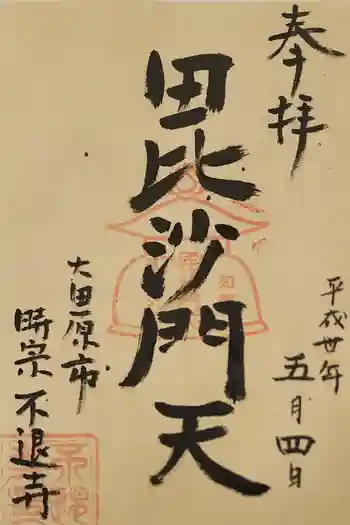 奉拝
平成丗年
五月四日
毘沙門天
大田原市
時宗不退寺